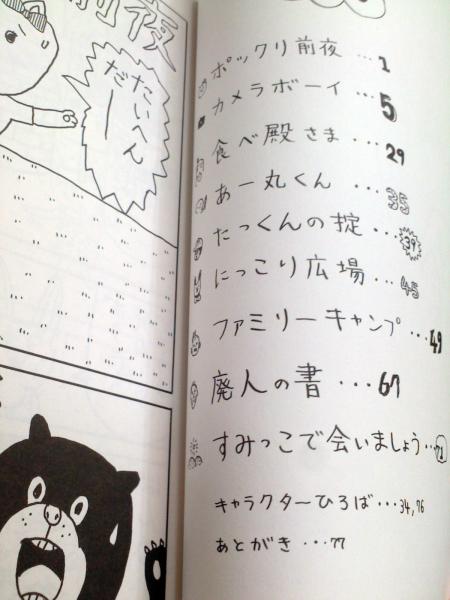 前夜
たいへん
だー
ポックリ前夜 …1
カメラボーイ …5
食べ殿さま …29
あー丸くん …35
たっくんの掟 …39
にっこり広場 …45
ファミリーキャンプ …49
廃人の書 …67
すみっこで会いましょう …71
キャラクターひろば …34,76
あとがき …77